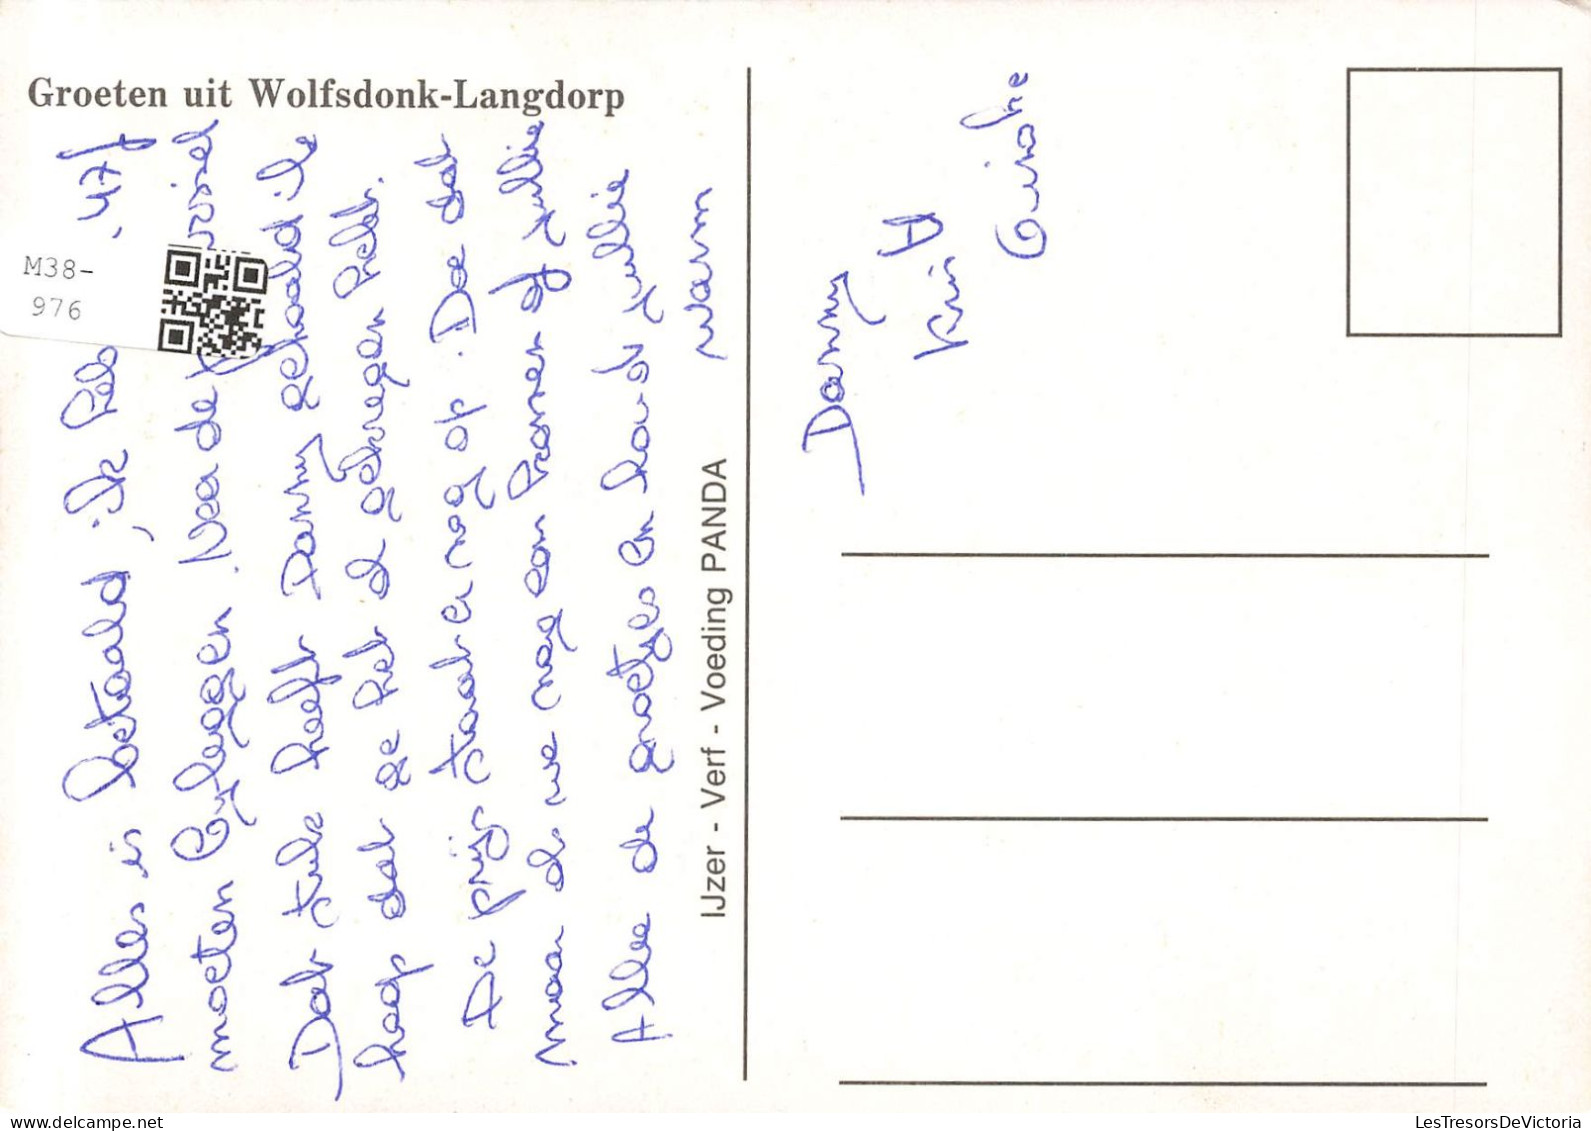 Groeten uit Wolfsdonk-Langdorp
M38-
976
Alles is betaald, ik heb 47f
moeten bijleggen. Na de
Dat stuk heeft Danny gehaald ik
hoop dat ge het al gekregen hebt.
De prijs staat er nog op. Doe dat
maar als we nog een komen of jullie
Allee de groetjes en houdt jullie
warm
IJzer - Verf - Voeding PANDA
Danny
Kris
LesTresorsDeVictoria